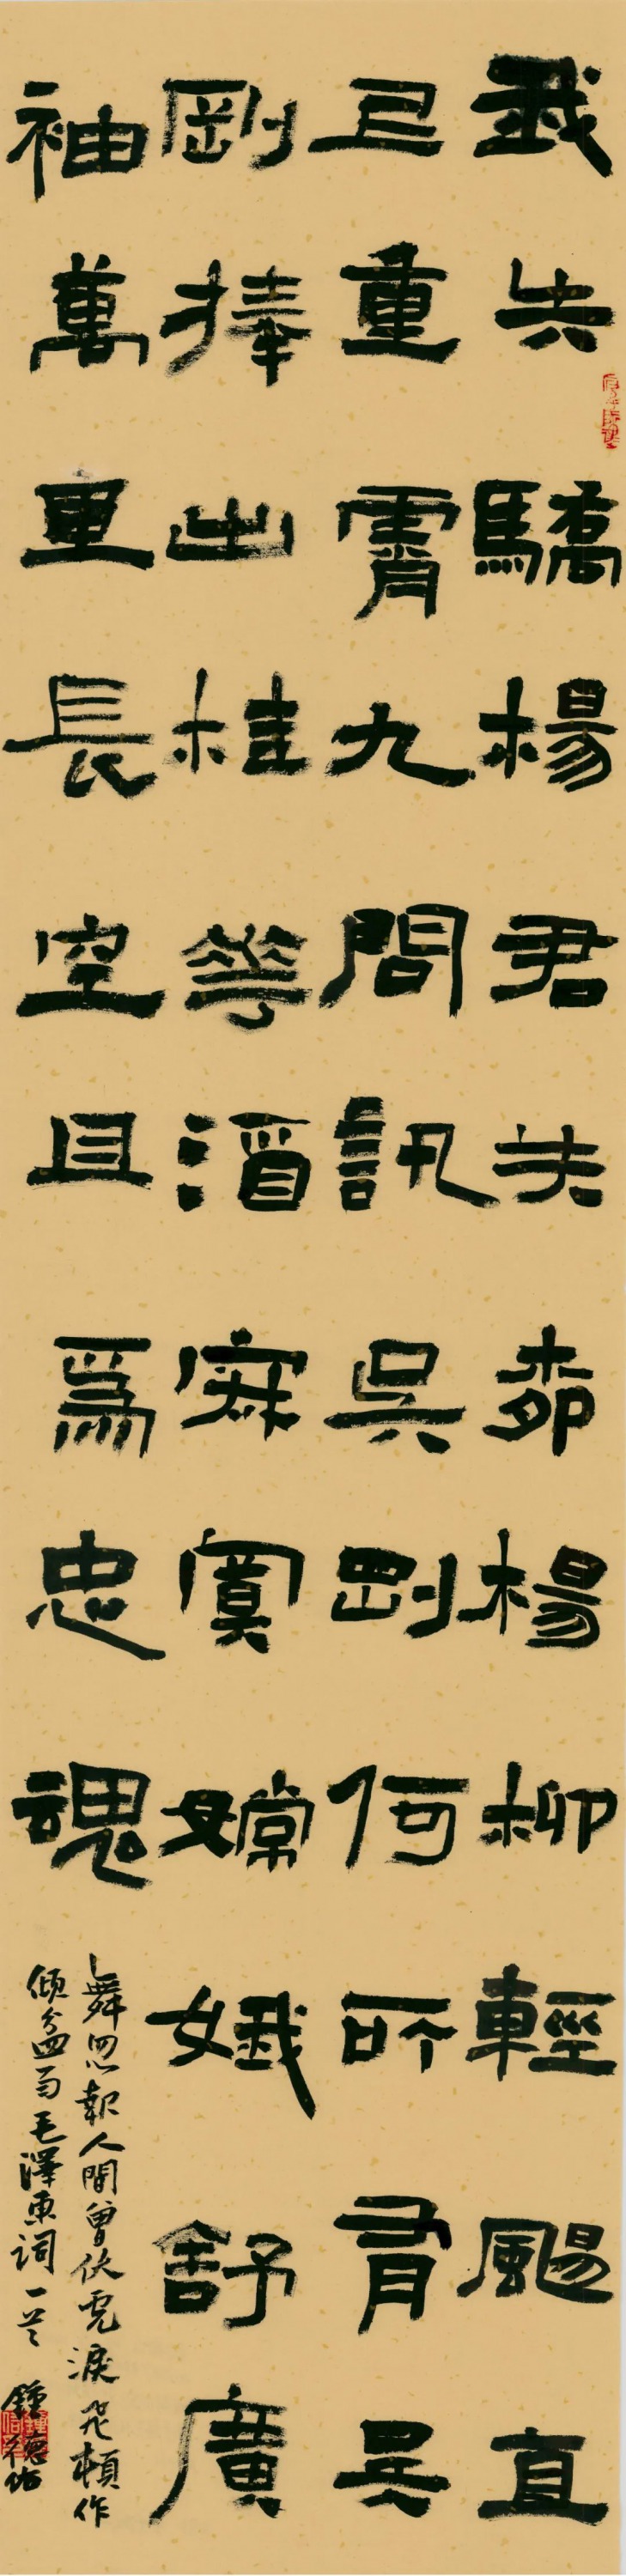 我失驕楊君失桺楊柳輕颺直
上重霄九問訊吳剛何所有吳
剛捧出桂花酒寂寞嫦娥舒廣
袖萬里長空且爲忠魂
舞忽報人間曾伏虎淚飛頓作
傾盆雨毛澤東詞一首 鍾德佑